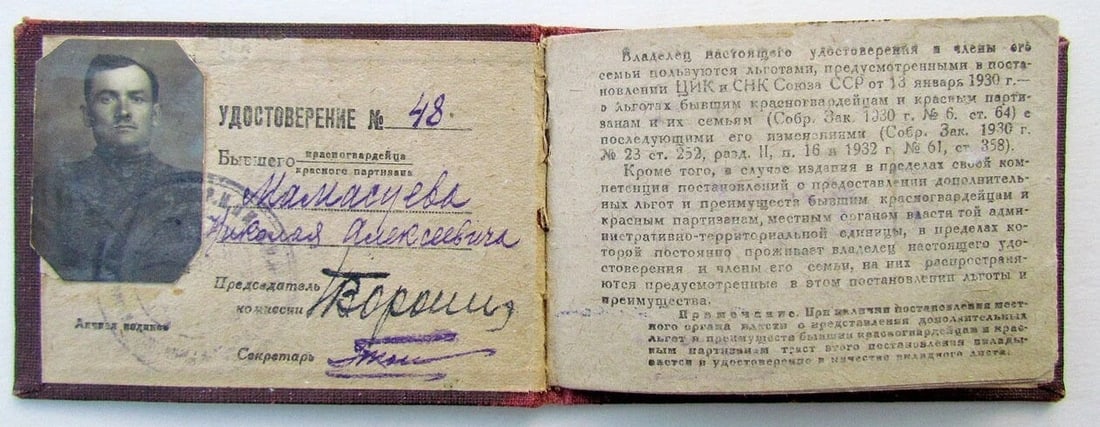 УДОСТОВЕРЕНИЕ № 48
Бывшего красногвардейца
красного партизана
Николая Алексеевича
Председатель
комиссии
Личная подпись
Секретарь
Владелец настоящего удостоверения и члены его
семьи пользуются льготами, предусмотренными в поста-
новлении ЦИК и СНК Союза ССР от 13 январь 1930 г.—
о льготах бывшим красногвардейцам и красным парти-
занам и их семьям (Собр. Зак. 1930 г. № 6. ст. 64) с
последующими его изменениями (Собр. Зак. 1930 г.
№ 23 ст. 252, разд. II, п. 16 и 1932 г. № 61, ст. 358).
Кроме того, в случае издания в пределах своей ком-
петенции постановлений о предоставлении дополнитель-
ных льгот и преимуществ бывшим красногвардейцам и
красным партизанам, местным органом власти той адми-
нистративно-территориальной единицы, в пределах ко-
торой постоянно проживает владелец настоящего удо-
стоверения и члены его семьи, на них распространя-
ются предусмотренные в этом постановлении льготы и
преимущества.
Примечание. При наличии постановления мест-
ного органа власти о представлении дополнительных
льгот и преимуществ бывшим красногвардейцам и крас-
ным партизанам текст этого постановления вклады-
вается в удостоверение в качестве вкладного листа.